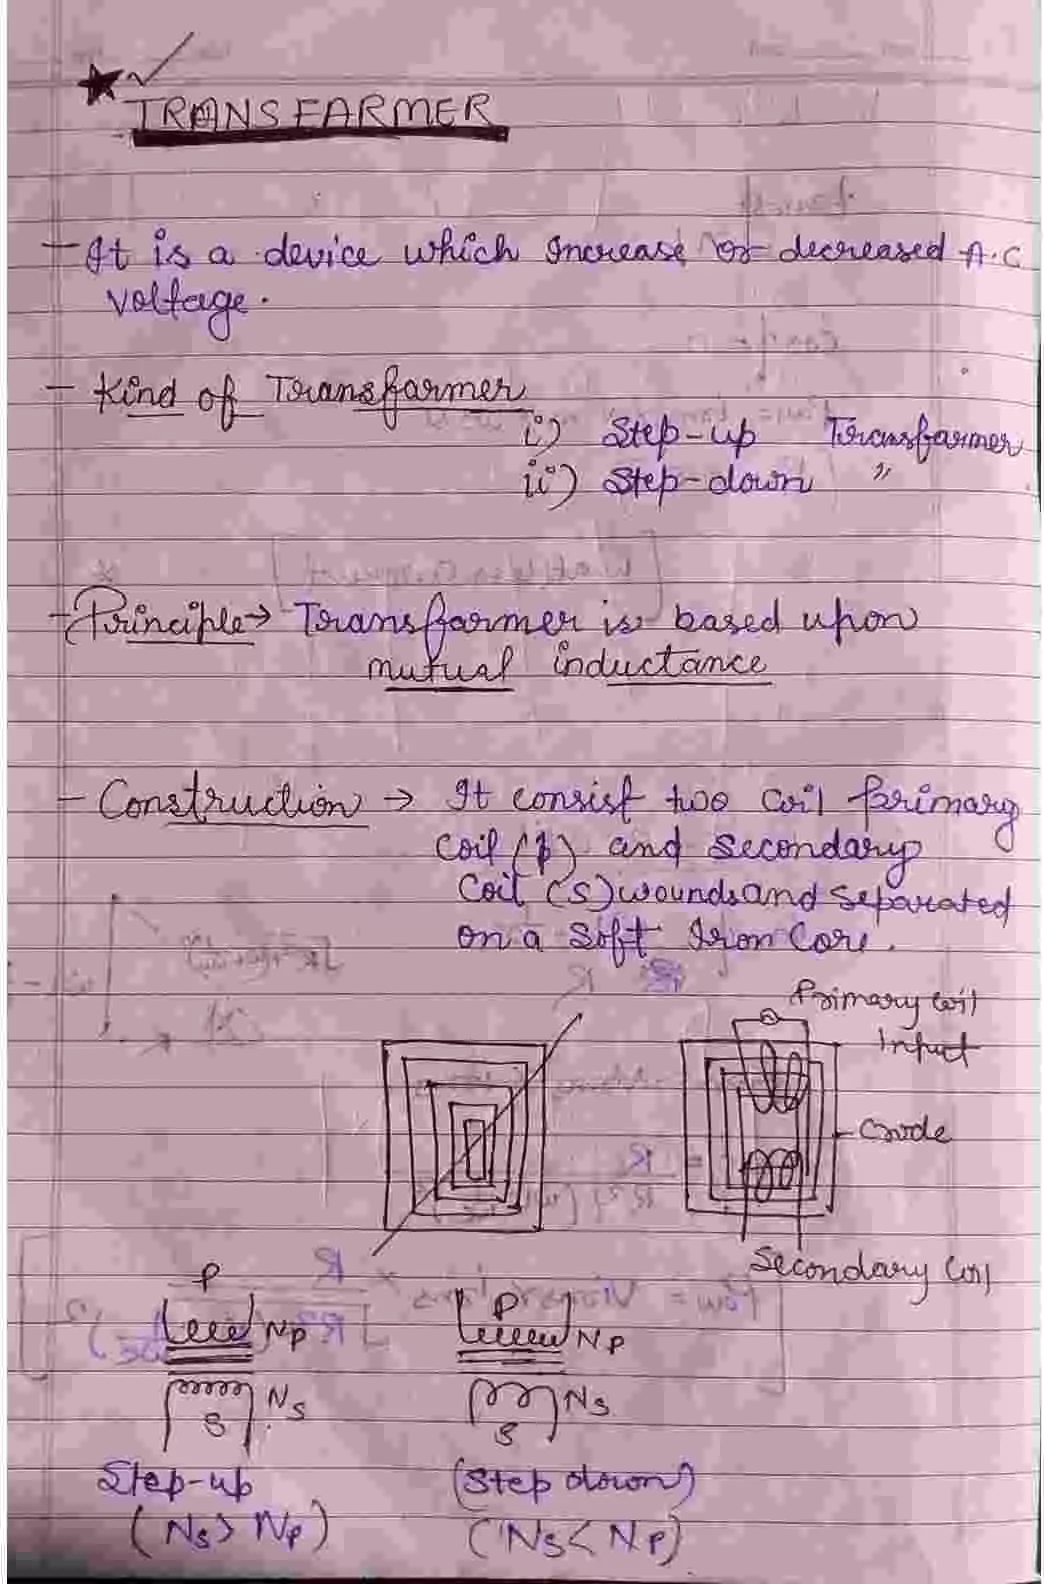 TRANSFARMER
- It is a device which Increase or decreased A.C
voltage.
- Kind of Transfarmer
i) Step-up Transfarmer
ii) Step-down "
- Principle → Transfarmer is based upon
mutual inductance
- Construction → It consist two coil primary
coil (p) and secondary
coil (S) wounds and separated
on a soft Iron Core.
Primary coil
Input
Secondary coil
P
Np
Ns
S
Step-up
(Ns > Np)
P
Np
Ns
S
(Step down)
(Ns < Np)